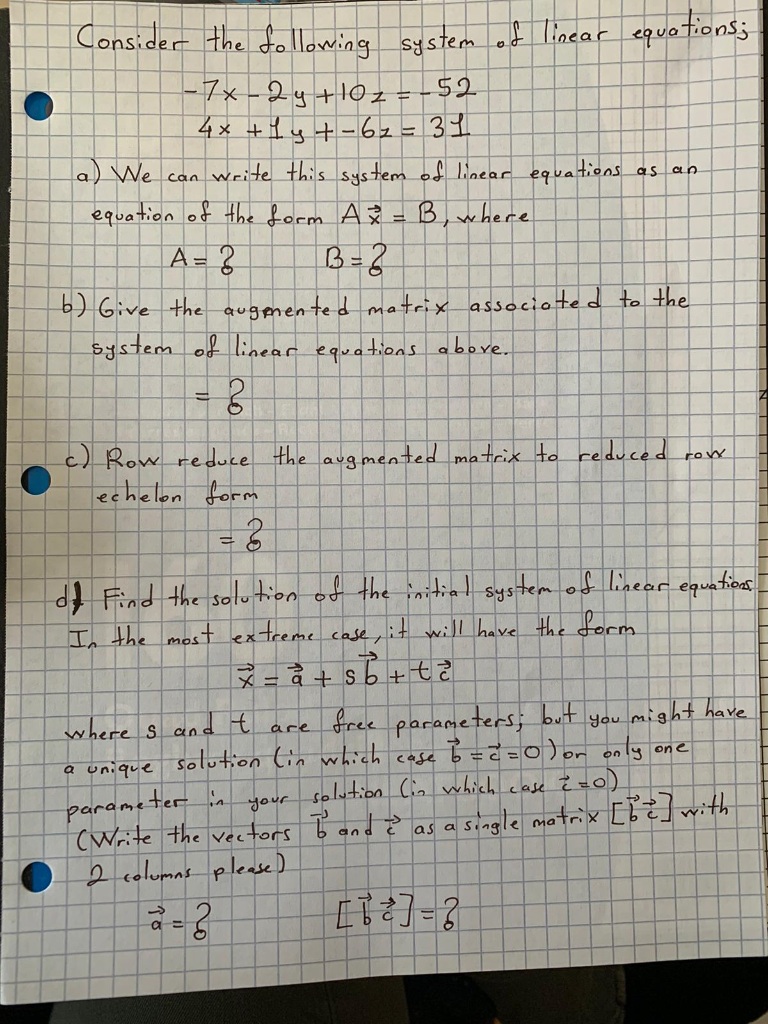 Consider the following system of linear equations;
-7x - 2y + 10z = -52
4x + 1y + -6z = 31
a) We can write this system of linear equations as an
equation of the form A x⃗ = B, where
A = ? B = ?
b) Give the augmented matrix associated to the
system of linear equations above.
= ?
c) Row reduce the augmented matrix to reduced row
echelon form
= ?
d) Find the solution of the initial system of linear equations
In the most extreme case, it will have the form
x⃗ = a⃗ + s b⃗ + t c⃗
where s and t are free parameters; but you might have
a unique solution (in which case b⃗ = c⃗ = 0) or only one
parameter in your solution (in which case c⃗ = 0)
(Write the vectors b⃗ and c⃗ as a single matrix [b⃗ c⃗] with
2 columns please)
a⃗ = ? [b⃗ c⃗] = ?